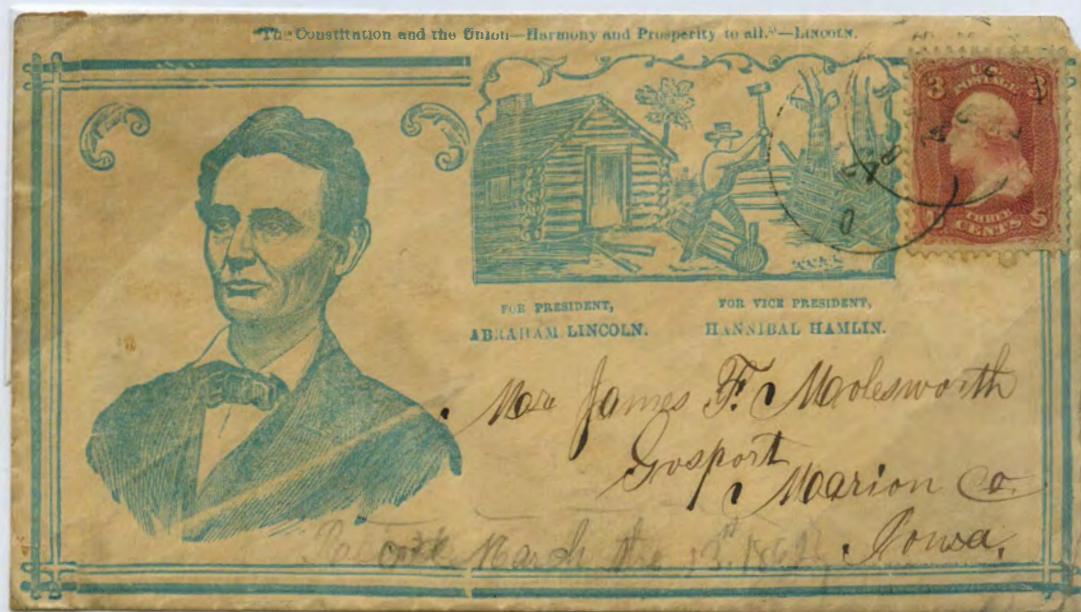 "The Constitution and the Union—Harmony and Prosperity to all."—LINCOLN.
U.S.
POSTAGE
3 3
THREE
CENTS
FOR PRESIDENT,
ABRAHAM LINCOLN.
FOR VICE PRESIDENT,
HANNIBAL HAMLIN.
Mr James F. Molesworth
Gosport
Marion Co.
Iowa,
March the 13th